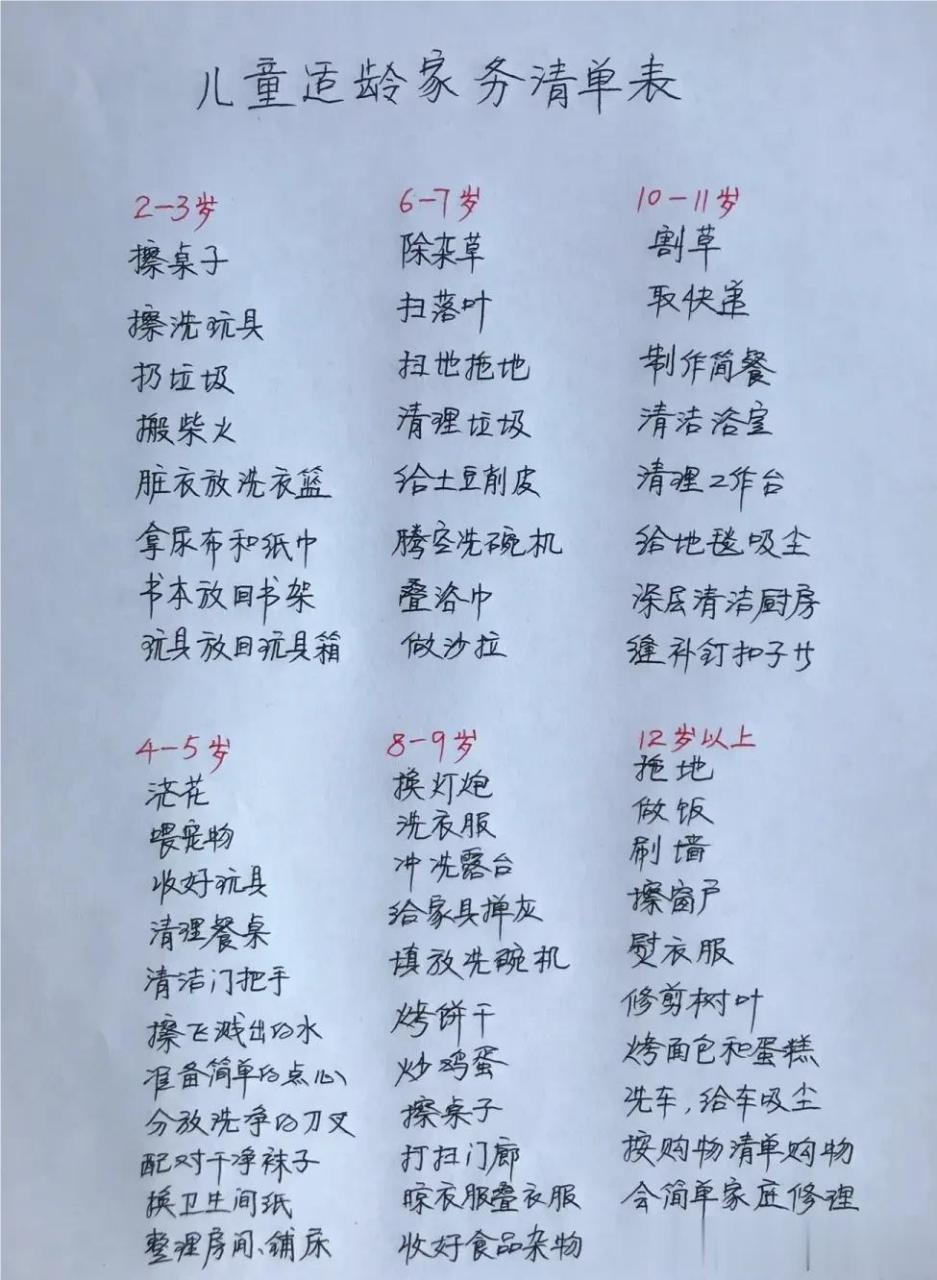 儿童适龄家务清单表
2-3岁
擦桌子
擦洗玩具
扔垃圾
搬柴火
脏衣放洗衣篮
拿尿布和纸巾
书本放回书架
玩具放回玩具箱
4-5岁
浇花
喂宠物
收好玩具
清理餐桌
清洁门把手
擦飞溅出的水
准备简单的点心
分放洗净的刀叉
配对干净袜子
换卫生间纸
整理房间、铺床
6-7岁
除杂草
扫落叶
扫地拖地
清理垃圾
给土豆削皮
腾空洗碗机
叠浴巾
做沙拉
8-9岁
换灯炮
洗衣服
冲洗露台
给家具掸灰
填放洗碗机
烤饼干
炒鸡蛋
擦桌子
打扫门廊
晾衣服叠衣服
收好食品杂物
10-11岁
割草
取快递
制作简餐
清洁浴室
清理工作台
给地毯吸尘
深层清洁厨房
缝补钉扣子
12岁以上
拖地
做饭
刷墙
擦窗户
熨衣服
修剪树叶
烤面包和蛋糕
洗车,给车吸尘
按购物清单购物
会简单家庭修理